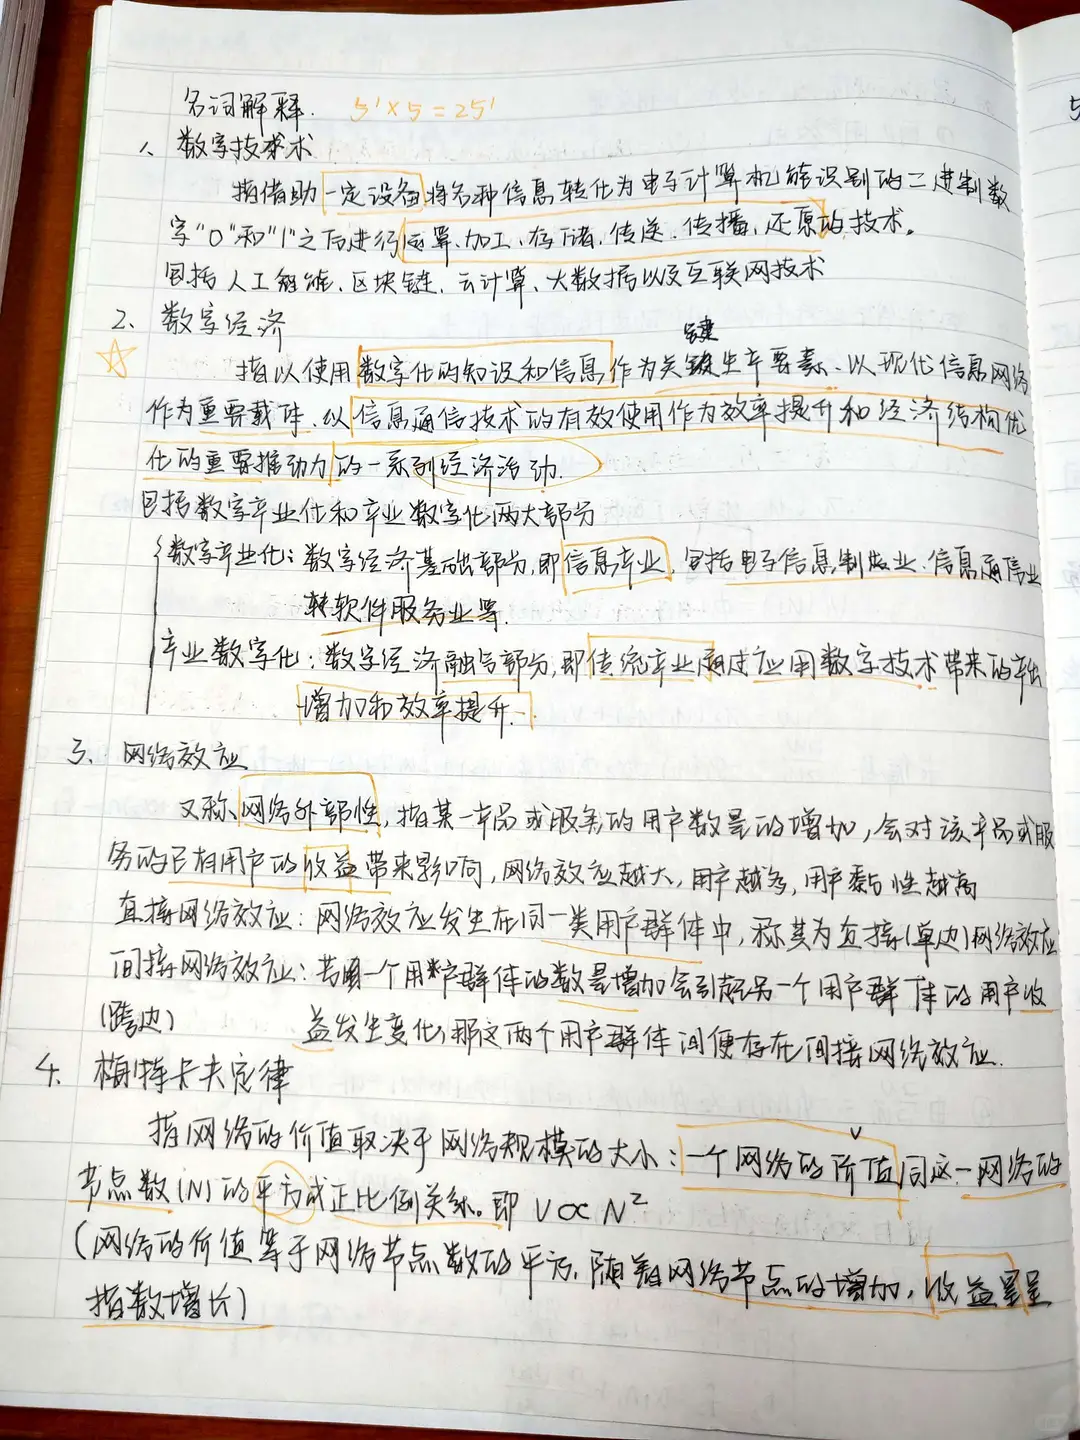 名词解释. 5'×5=25'
1、数字技术
指借助一定设备将各种信息转化为电子计算机能识别的二进制数
字"0"和"1"之后进行运算、加工、存储、传送、传播、还原的技术。
包括人工智能、区块链、云计算、大数据以及互联网技术
2、数字经济
指以使用数字化的知识和信息作为关键生产要素、以现代信息网络
作为重要载体、以信息通信技术的有效使用作为效率提升和经济结构优
化的重要推动力的一系列经济活动.
包括数字产业化和产业数字化两大部分
数字产业化:数字经济基础部分,即信息产业,包括电子信息制造业、信息通信业
软件服务业等.
产业数字化:数字经济融合部分,即传统产业通过应用数字技术带来的产出
增加和效率提升.
3、网络效应
又称网络外部性,指某一产品或服务的用户数量的增加,会对该产品或服
务的已有用户的收益带来影响,网络效应越大,用户越多,用户黏性越高
直接网络效应:网络效应发生在同一类用户群体中,称其为直接(单边)网络效应
间接网络效应:若一个用户群体的数量增加会引起另一个用户群体的用户收
(跨边) 益发生变化,那这两个用户群体间便存在间接网络效应.
4、梅特卡夫定律
指网络的价值取决于网络规模的大小:一个网络的价值同这一网络的
节点数(N)的平方成正比例关系。即 V∝N²
(网络的价值等于网络节点数的平方,随着网络节点的增加,收益呈
指数增长)
5